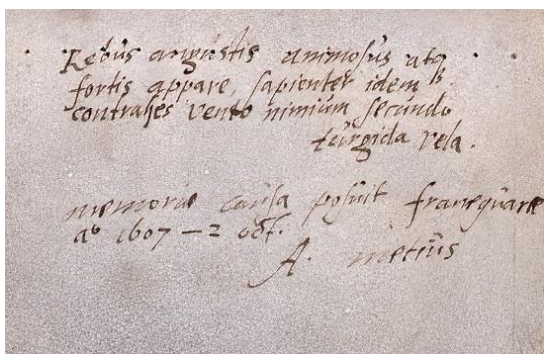 Rebus angustis animosus atq
fortis appare, sapienter idem
contrahes vento nimium secundo
turgida vela.
memoriæ causa posuit franequaræ
aº 1607 – 2 oct.
A. metius